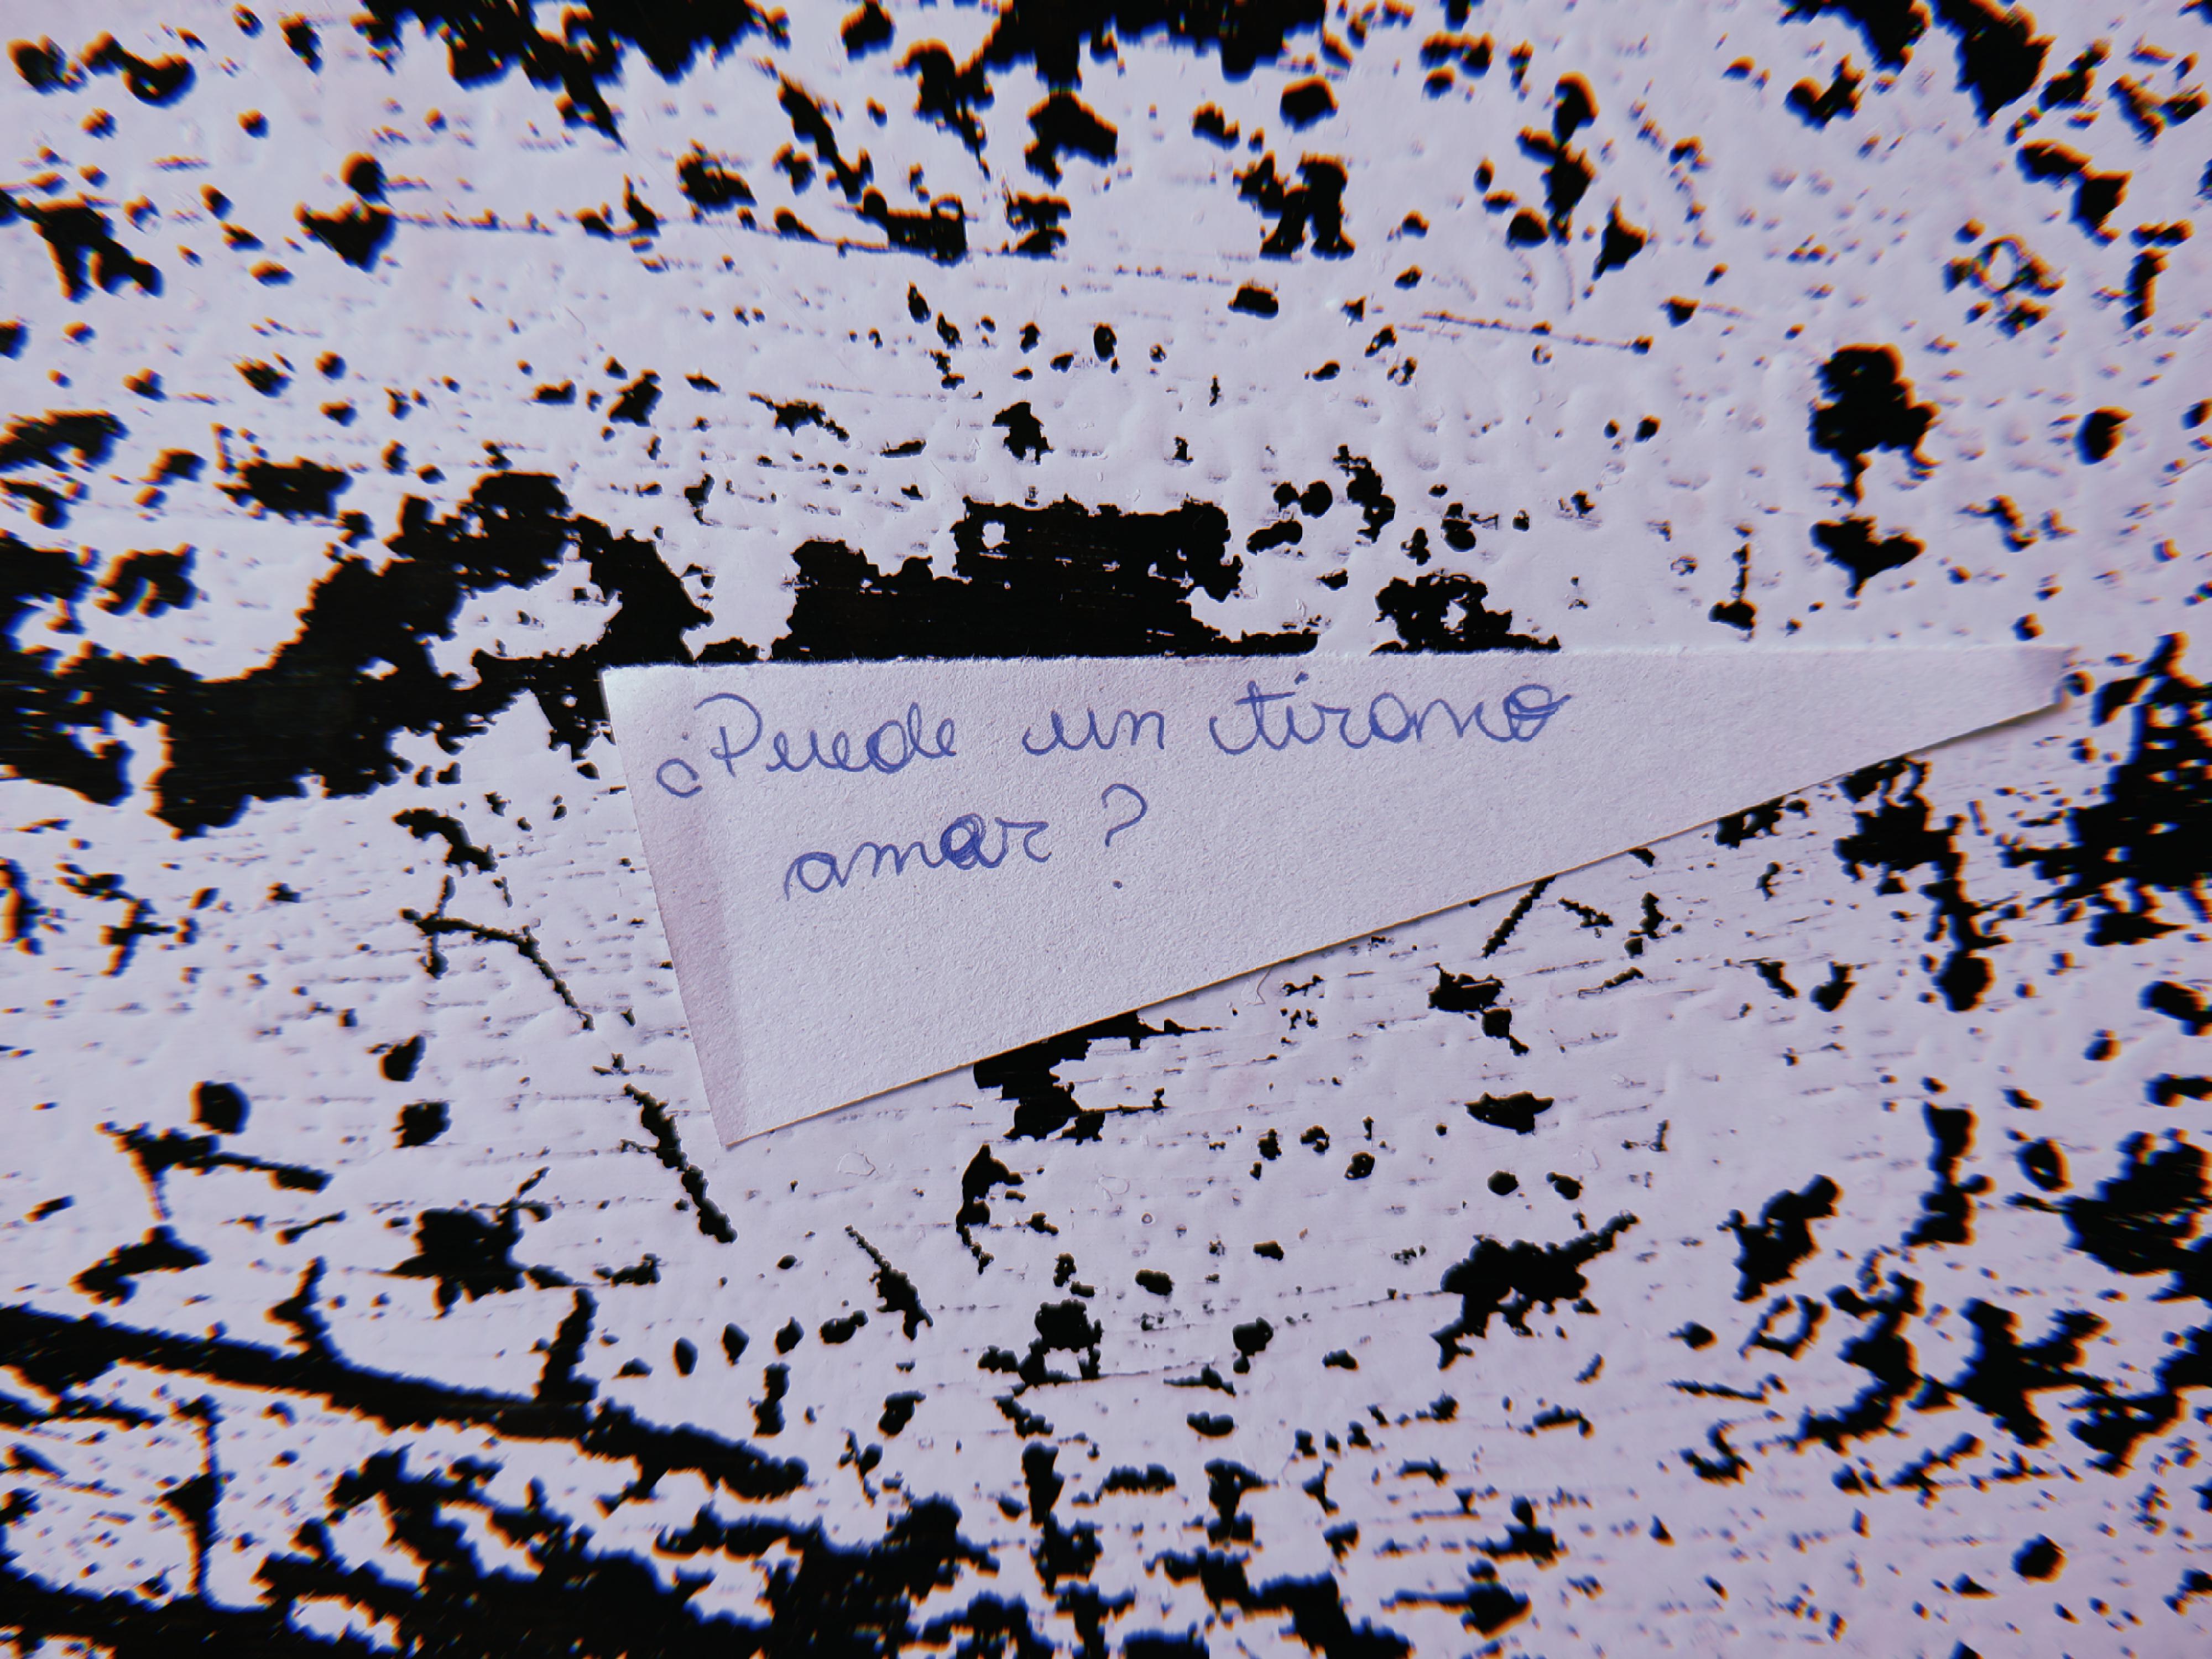 ¿Puede un tirano
amar?